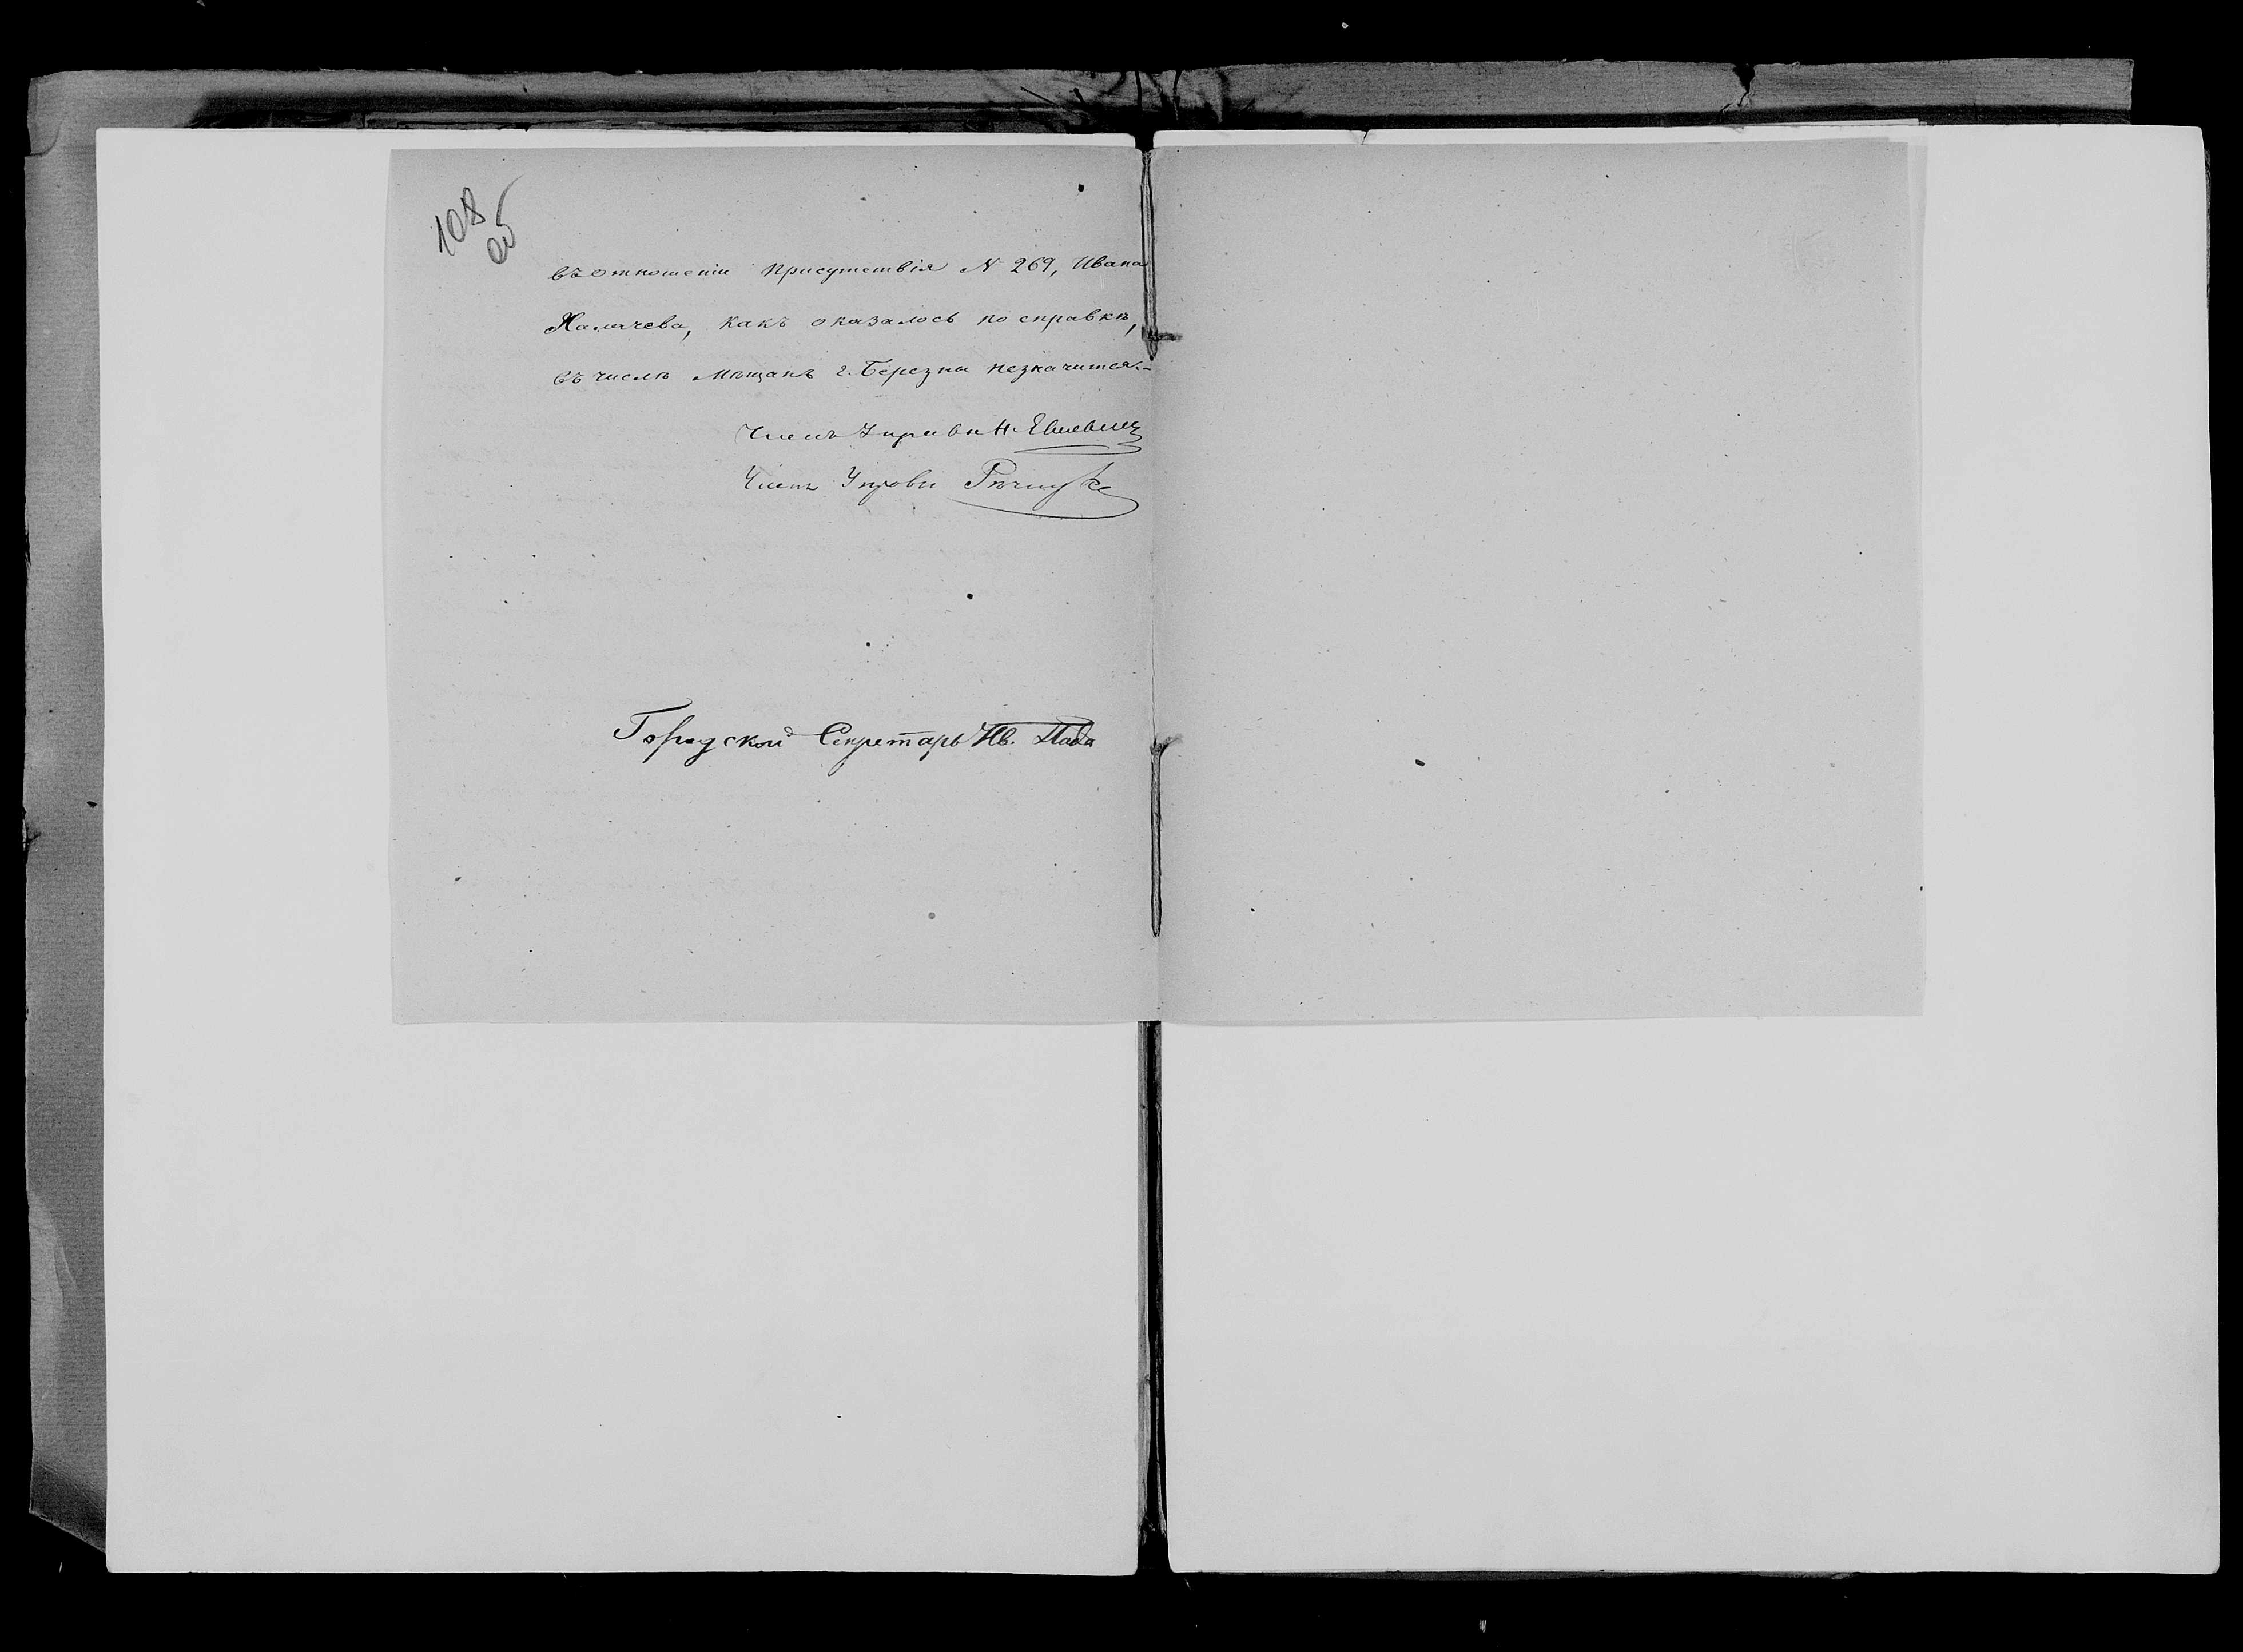 108
об
въ отношеніи Присутствія № 269, Ивана
Халичева, какъ оказалось по справкѣ,
въ числѣ мѣщанъ г. Березны незначится.-
Членъ Управы Н.
Членъ Управы
Городской Секретарь Ив.